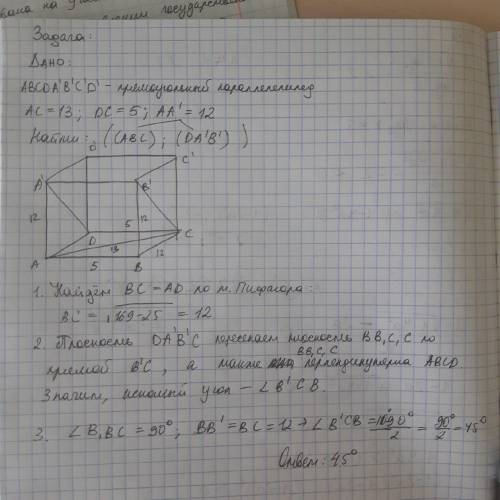 Задача:
Дано:
ABCDA'B'C'D' - прямоугольный параллелепипед
AC = 13; DC = 5; AA' = 12
Найти: ((ABC); (DA'B'))
D'
C'
A'
B'
12
12
5
D
C
13
12
A
5
B
1. Найдём BC = AD по т. Пифагора:
BC = √169-25 = 12
2. Плоскость DA'B'C пересекает плоскость BB₁C₁C по
прямой B'C, а также BB₁C₁C перпендикулярна ABCD.
Значит, искомый угол - ∠B'CB.
3. ∠B₁BC = 90°; BB' = BC = 12 → ∠B'CB = 90°/2 = 90°/2 = 45°
Ответ: 45°